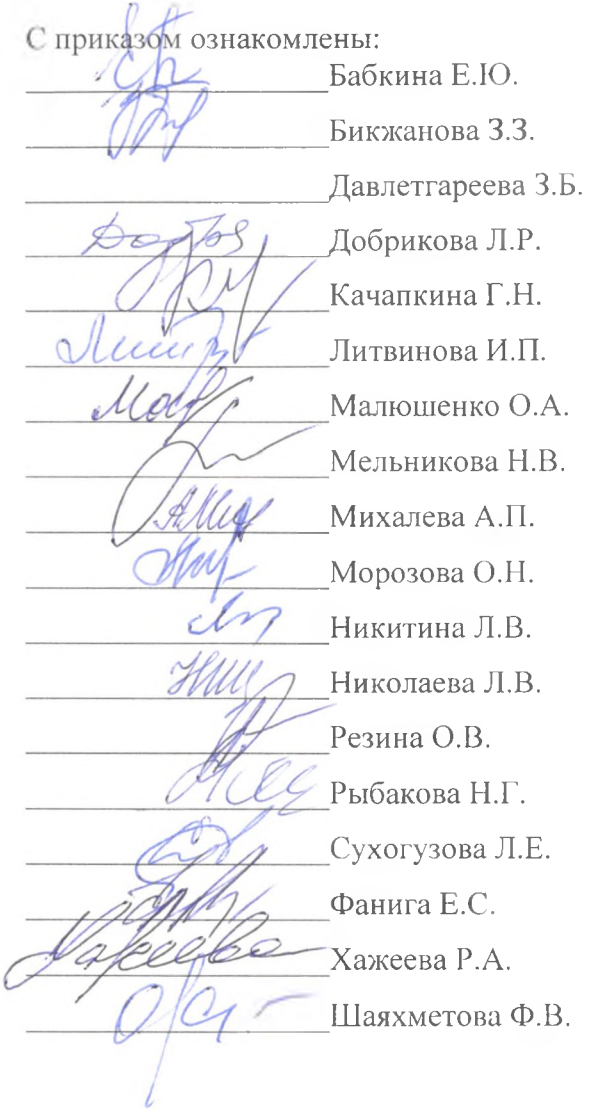 С приказом ознакомлены:
Бабкина Е.Ю.
Бикжанова З.З.
Давлетгареева З.Б.
Добрикова Л.Р.
Качапкина Г.Н.
Литвинова И.П.
Малюшенко О.А.
Мельникова Н.В.
Михалева А.П.
Морозова О.Н.
Никитина Л.В.
Николаева Л.В.
Резина О.В.
Рыбакова Н.Г.
Сухогузова Л.Е.
Фанига Е.С.
Хажеева Р.А.
Шаяхметова Ф.В.